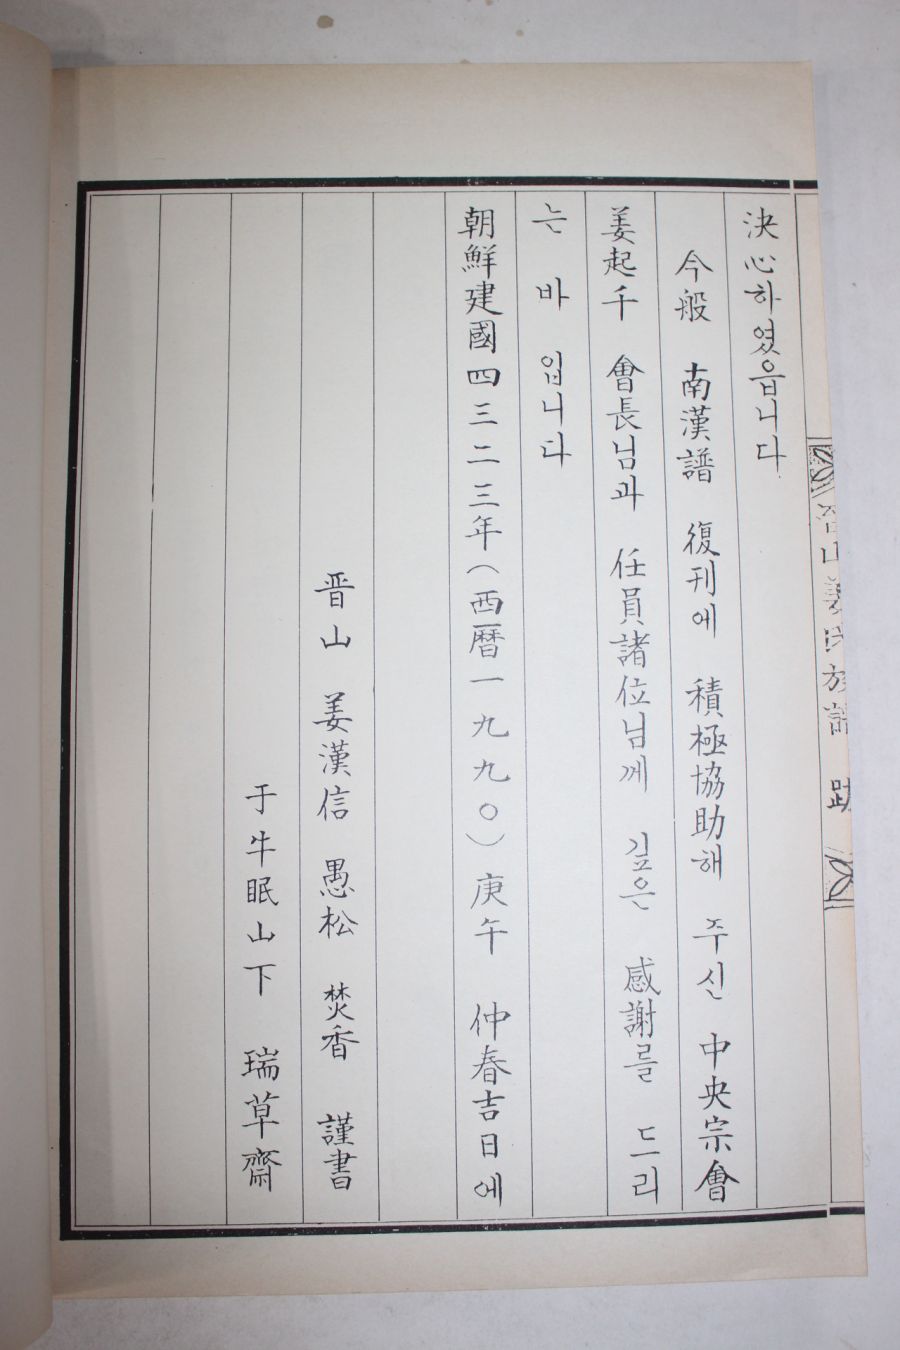 晋山姜氏族譜 跋
決心하였읍니다
今般 南漢譜 復刊에 積極協助해 주신 中央宗會
姜起千 會長님과 任員諸位님께 깊은 感謝를 드리
는 바 입니다
朝鮮建國四三二三年(西曆一九九〇)庚午 仲春吉日에
晋山 姜漢信 愚松 焚香 謹書
于牛眠山下 瑞草齋